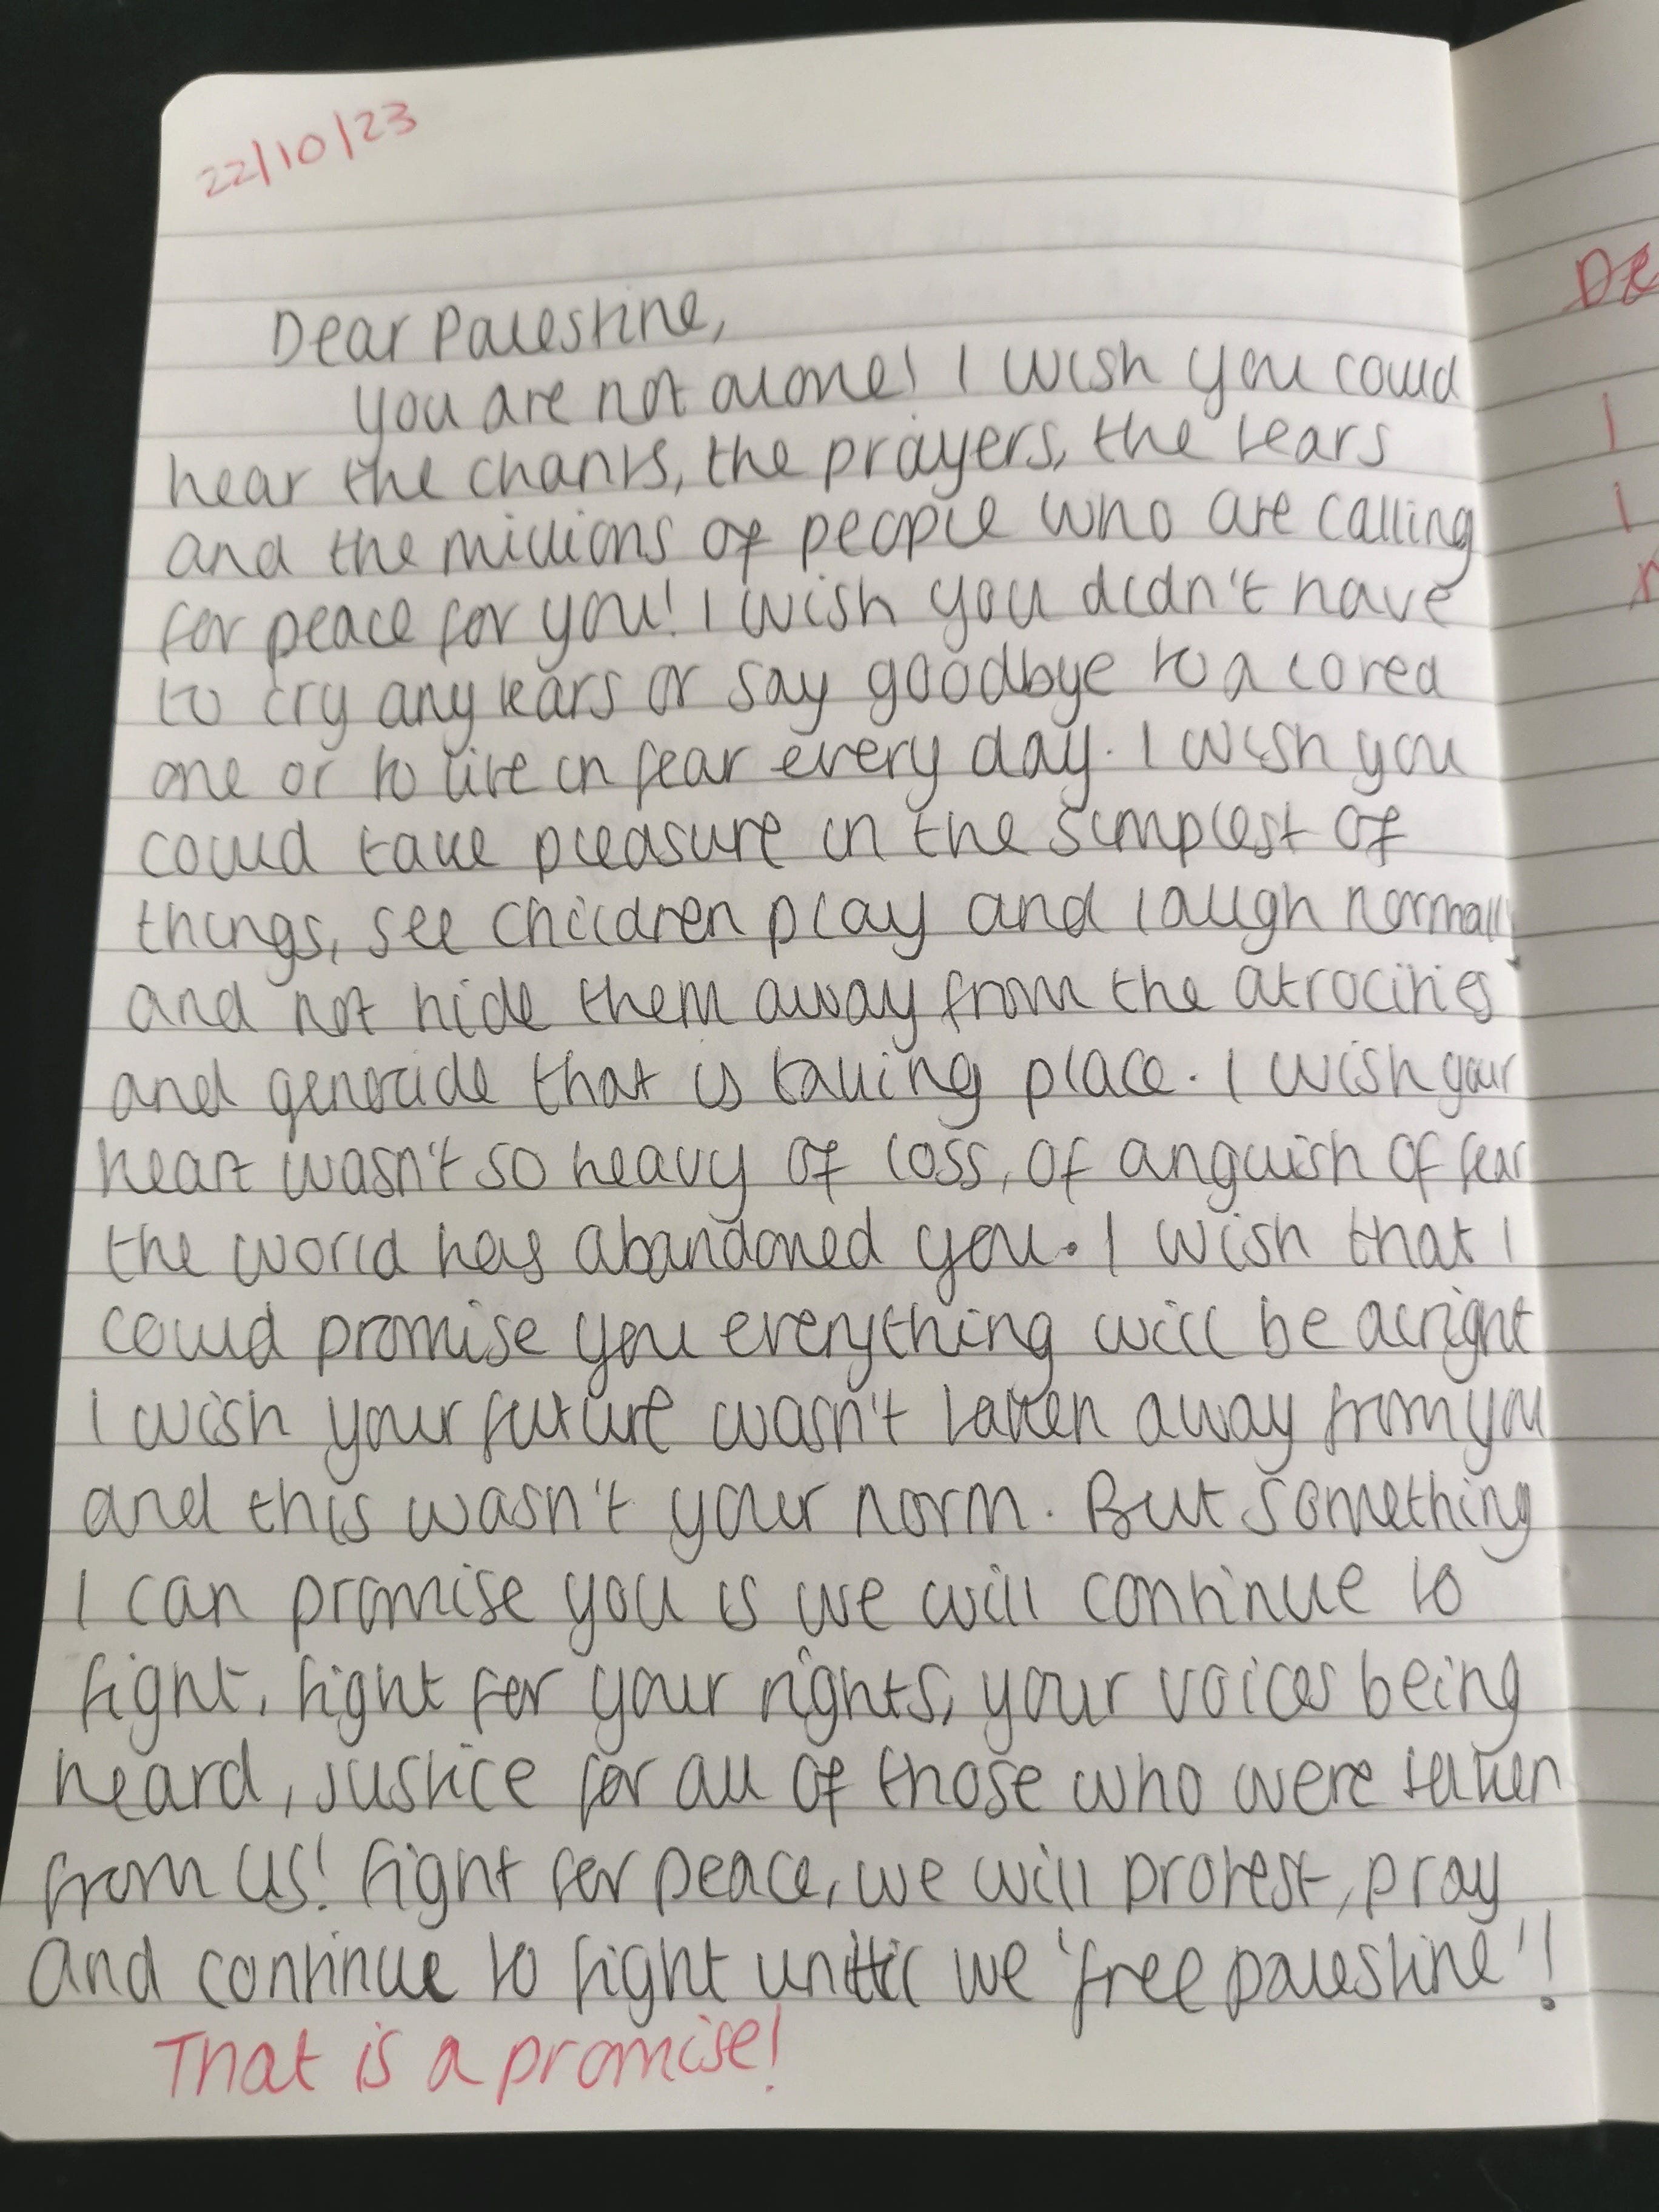 22/10/23
Dear Palestine,
you are not alone! I wish you could
hear the chants, the prayers, the tears
and the millions of people who are calling
for peace for you! I wish you didn't have
to cry any tears or say goodbye to a loved
one or to live in fear every day. I wish you
could take pleasure in the simplest of
things, see children play and laugh normally
and not hide them away from the atrocities
and genocide that is taking place. I wish your
heart wasn't so heavy of loss, of anguish of fear
the world has abandoned you. I wish that I
could promise you everything will be alright
I wish your future wasn't taken away from you
and this wasn't your norm. But something
I can promise you is we will continue to
fight, fight for your rights, your voices being
heard, justice for all of those who were taken
from us! fight for peace, we will protest, pray
and continue to fight until we 'free palestine'!
That is a promise!